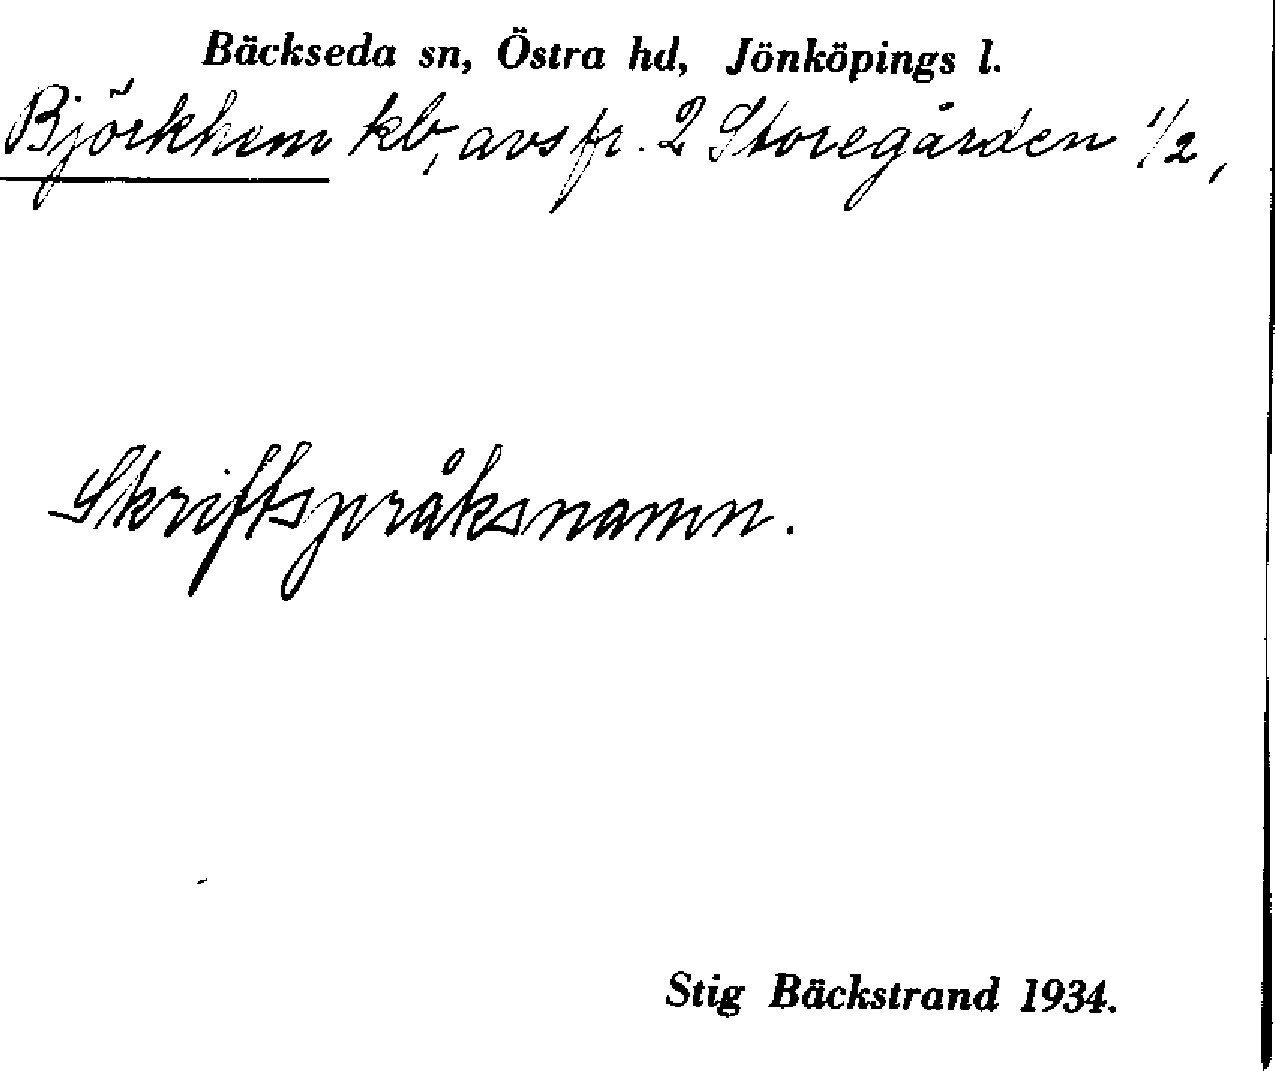 Bäckseda sn, Östra hd, Jönköpings l.
Björkhem kb, avs fr. 2 Storegården 1/2,
Skriftspråksnamn.
Stig Bäckstrand 1934.